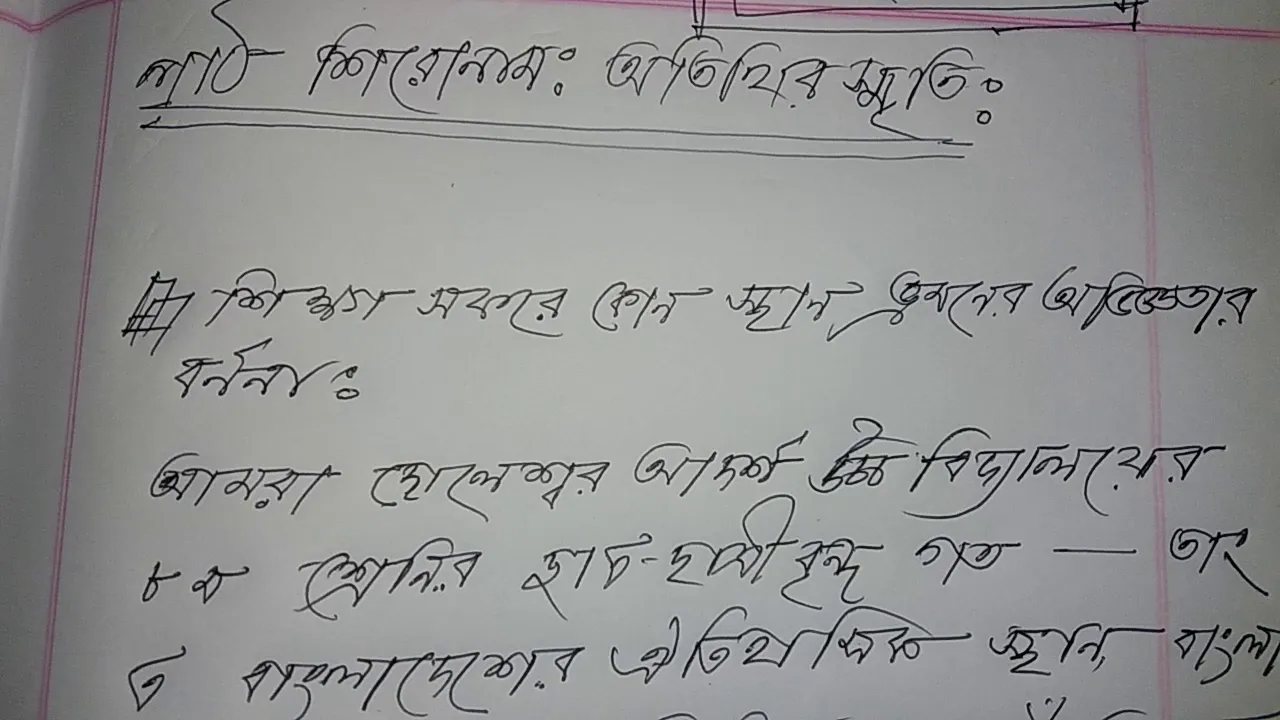 পাঠ শিরোনাম: অতিথির স্মৃতি:
# শিক্ষা সফরে কোন স্থান ভ্রমনের অভিজ্ঞতার
বর্ননা:
আমরা ভোলেশ্বর আদর্শ উচ্চ বিদ্যালয়ের
৮ম শ্রেনির ছাত্র-ছাত্রীবৃন্দ গত — তাং
বাংলাদেশের ঐতিহাসিক স্থান, বাংলা